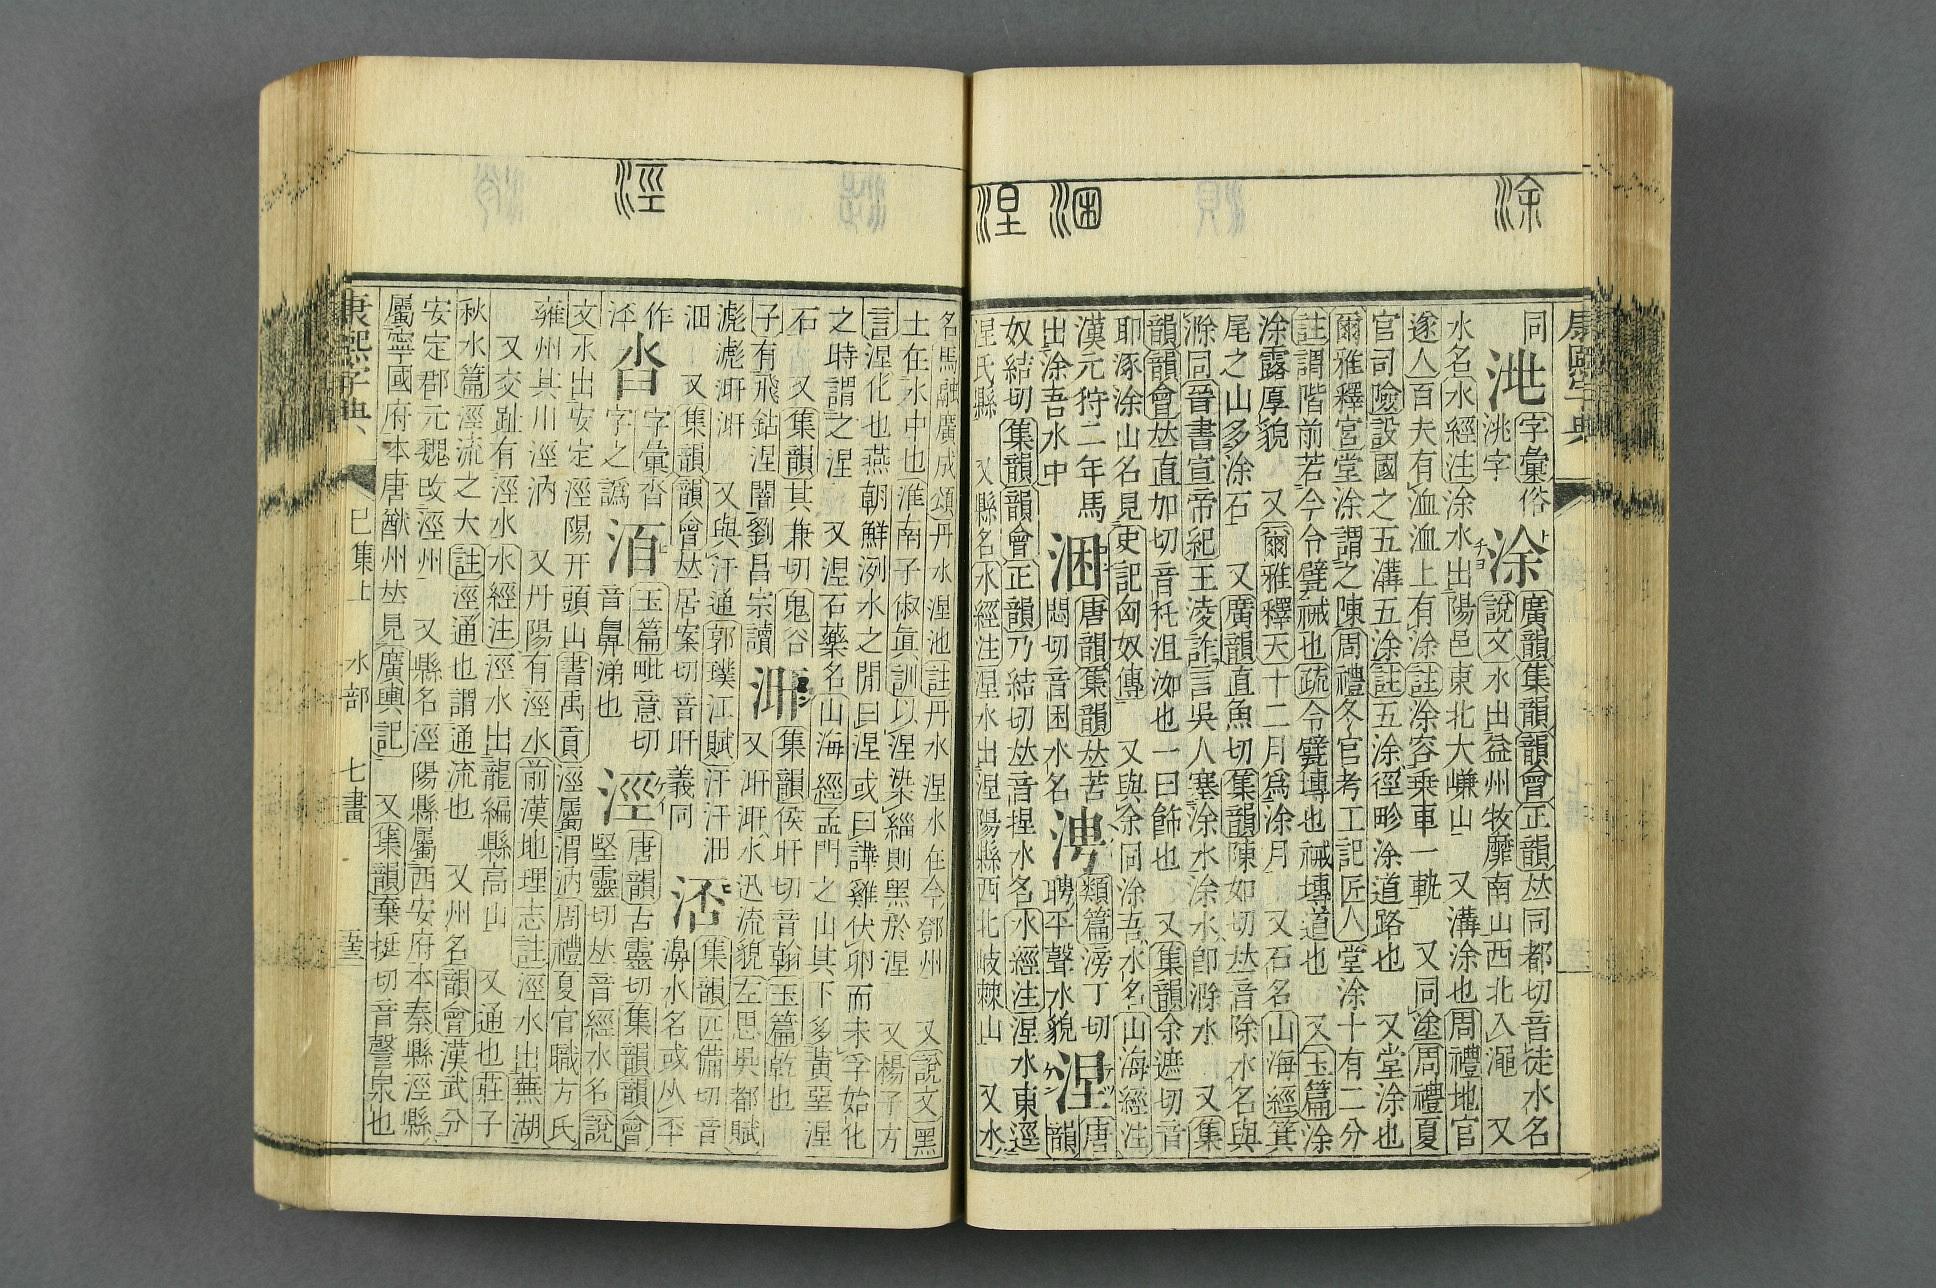 涂
涃
涅
康熙字典
同 字彙俗 涂 廣韻集韻韻會正韻𠀤同都切音徒水名
洮字 說文水出益州牧靡南山西北入澠 又
水名水經注涂水出陽邑東北大嵰山 又溝涂也周禮地官
遂人百夫有洫洫上有涂註涂容乗車一軌 又同塗周禮夏
官司險設國之五溝五涂註五涂徑畛涂道路也 又堂涂也
爾雅釋宮堂涂謂之陳周禮冬官考工記匠人堂涂十有二分
註謂階前若今令甓裓也疏令甓塼也裓塼道也 又玉篇涂
涂露厚貌 又爾雅釋天十二月爲涂月 又石名山海經箕
尾之山多涂石 又廣韻直魚切集韻陳如切𠀤音除水名與
滁同晉書宣帝紀王淩詐言吳人塞涂水涂水卽滁水 又集
韻韻會𠀤直加切音秅沮洳也一曰飾也 又集韻余遮切音
耶涿涂山名見史記匈奴傳 又與余同涂吾水名山海經注
漢元狩二年馬 涃 唐韻集韻𠀤苦 涄 類篇滂丁切 涅 唐
出涂吾水中 悶切音困水名 聘平聲水貌 韻
奴結切集韻韻會正韻乃結切𠀤音捏水名水經注涅水東逕
涅氏縣 又縣名水經注涅水出涅陽縣西北岐棘山 又水
涇
名馬融廣成頌丹水涅池註丹水涅水在今鄧州 又說文黑
土在水中也淮南子俶眞訓以涅染緇則黑於涅 又楊子方
言涅化也燕朝鮮洌水之閒曰涅或曰譁雞伏卵而未孚始化
之時謂之涅 又涅石藥名山海經孟門之山其下多黃堊涅
石 又集韻其兼切鬼谷 涆 集韻侯旰切音翰玉篇乾也
子有飛鉆涅闇劉昌宗讀 又涆涆水迅流貌左思吳都賦
滮滮涆涆 又與汗通郭璞江賦汗汗沺 集韻匹備切音
沺 又集韻韻會𠀤居案切音旰義同 濞水名或从丕
作 字彙沓 玉篇毗意切 涇 唐韻古靈切集韻韻會
字之譌 音鼻涕也 堅靈切𠀤音經水名說
文水出安定涇陽幵頭山書禹貢涇屬渭汭周禮夏官職方氏
雍州其川涇汭 又丹陽有涇水前漢地理志註涇水出蕪湖
又交趾有涇水水經注涇水出龍編縣高山 又通也莊子
秋水篇涇流之大註涇通也謂通流也 又州名韻會漢武分
安定郡元魏改涇州 又縣名涇陽縣屬西安府本秦縣涇縣
屬寧國府本唐猷州𠀤見廣輿記 又集韻棄挺切音謦泉也
康熙字典 巳集上 水部 七畫